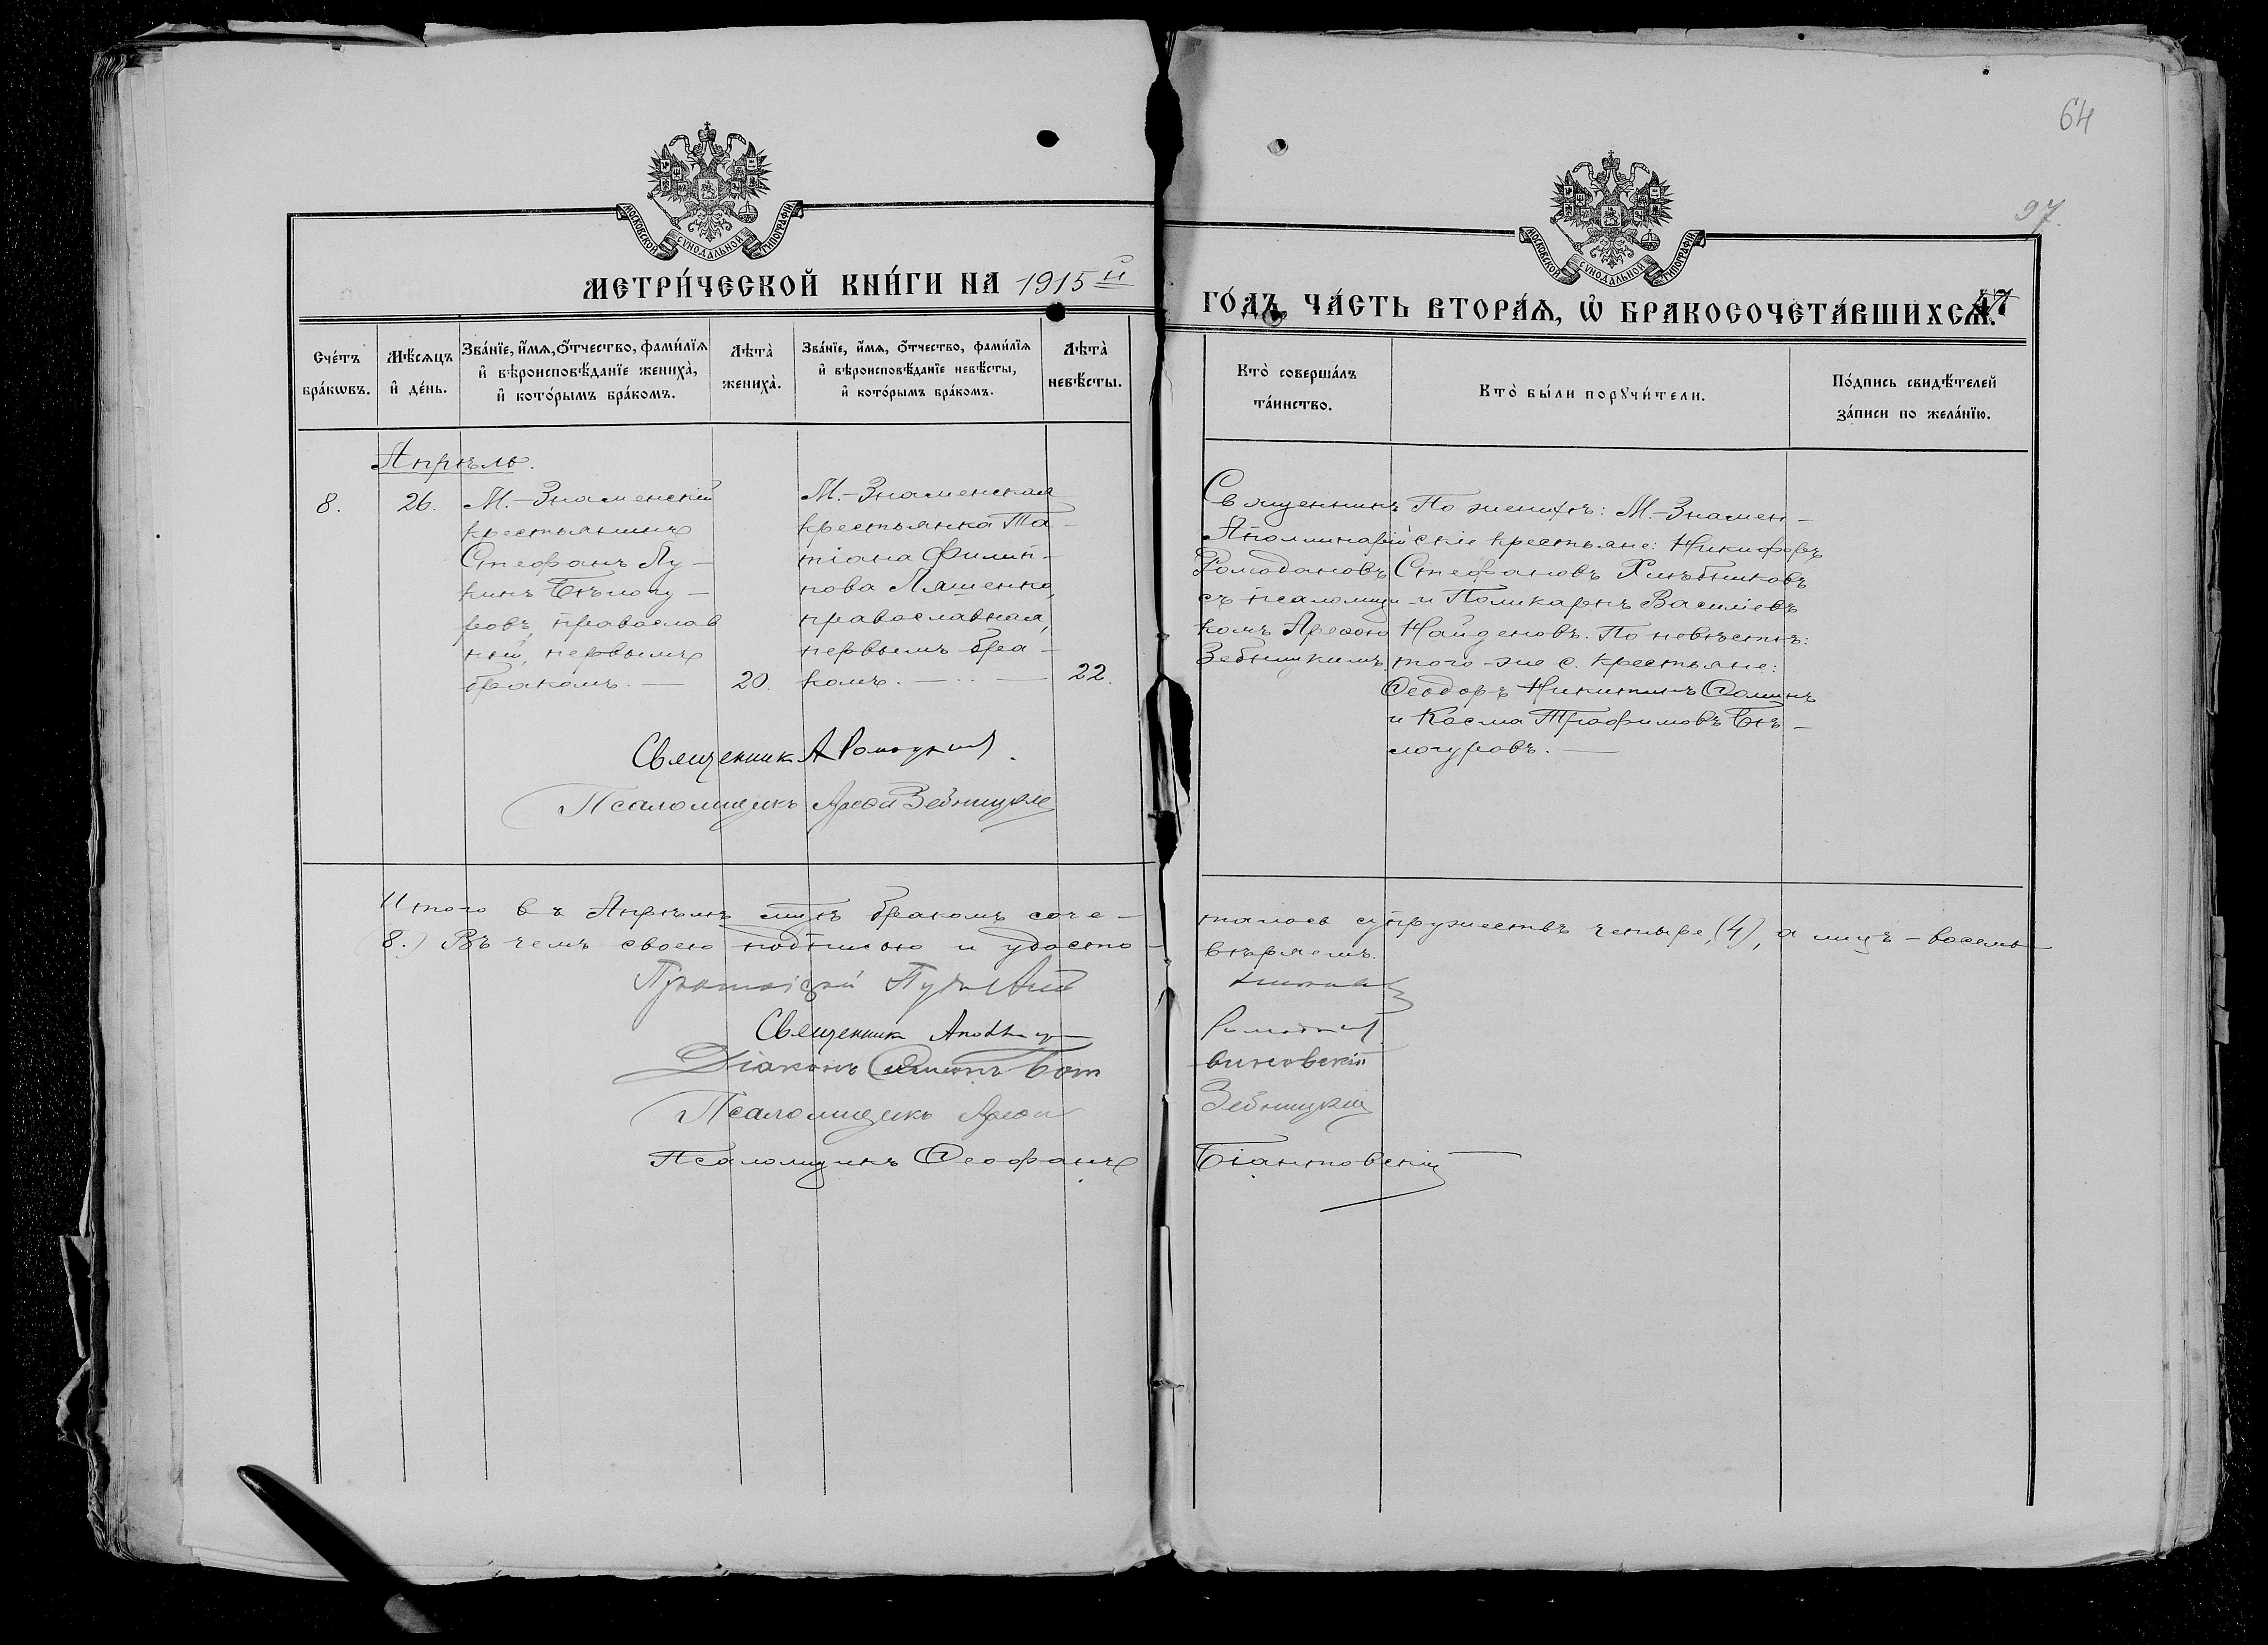 64
97.
МОСКОВСКОЙ СУНОДАЛЬНОЙ ТИПОГРАФІИ
МОСКОВСКОЙ СУНОДАЛЬНОЙ ТИПОГРАФІИ
МЕТРИ́ЧЕСКОЙ КНИ́ГИ НА 1915 й
ГО́ДЪ, ЧА́СТЬ ВТОРА́Ѧ, Ѽ БРАКОСОЧЕТА́ВШИХСѦ.
47
Сче́тъ бра́кѡвъ.
Мѣ́сяцъ и҆ де́нь.
Зва́нїе, и҆́мѧ, ѻ҆́тчество, фами́лїѧ и҆ вѣроисповѣ́данїе жениха̀, и҆ кото́рымъ бра́комъ.
Лѣта̀ жениха̀.
Зва́нїе, и҆́мѧ, ѻ҆́тчество, фами́лїѧ и҆ вѣроисповѣ́данїе невѣ́сты, и҆ кото́рымъ бра́комъ.
Лѣта̀ невѣ́сты.
Кто̀ соверша́лъ та́инство.
Кто̀ бы́ли порꙋчи́тели.
По́дпись свидѣ́телей за́писи по жела́нїю.
Апрѣль.
8.
26.
М.-Знаменскій
крестьянинъ
Стефанъ Лу-
кинъ Бѣлогу-
ровъ, православ
ный, первымъ
бракомъ. —
20.
М.-Знаменская
крестьянка Та-
тіана Филип-
пова Ляшенко,
православная,
первымъ бра-
комъ. —
22.
Священникъ
Аполлинарій
Ромодановъ
съ псаломщи-
комъ Арефою
Зебницкимъ.
По женихѣ: М.-Знамен-
скіе крестьяне: Никифоръ
Стефановъ Хлѣбниковъ
и Поликарпъ Васильевъ
Найденовъ. По невѣстѣ:
того-же с. крестьяне:
Ѳеодоръ Никитинъ Ѳоминъ
и Косма Трофимовъ Бѣ-
логуровъ. —
Священник А Ромодановъ.
Псаломщикъ Арефа Зебницкій
Итого въ Апрѣлѣ м-цѣ бракомъ соче-
талось супружествъ четыре, (4), а лицъ - восемь
8.) Въ чемъ своею подписью и удосто-
вѣряемъ.
Протоіерей
Священник
Ромодановъ
Діаконъ Симеонъ Бот
виновскій
Псаломщикъ Арефа
Зебницкій
Псаломщикъ Ѳеофанъ
Біантовскій